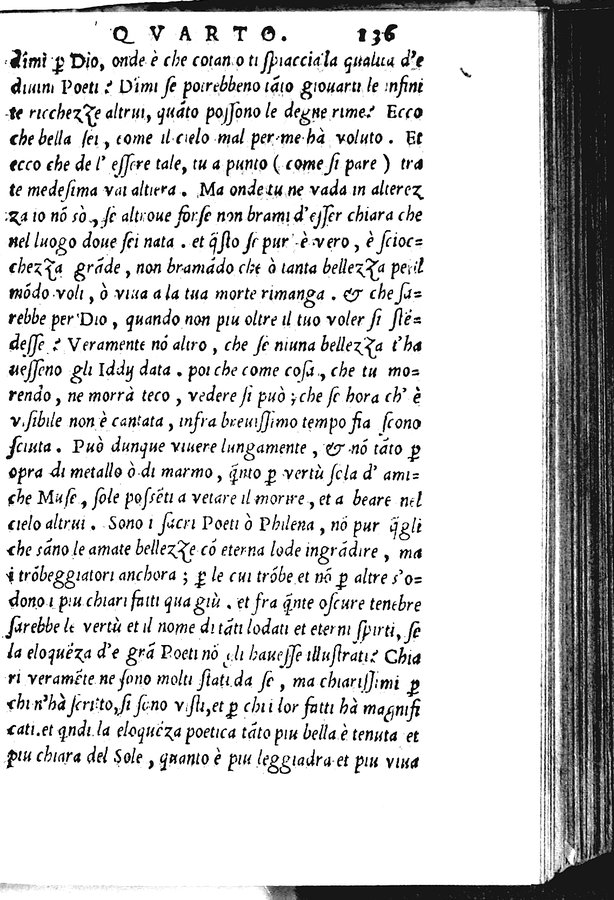 QVARTO. 136
dimi ꝑ Dio, onde è che cotanto ti spiaccia la qualità d'e
diuini Poeti? Dimi se potrebbeno tãto giouarti le infini
te ricchezze altrui, quãto possono le degne rime? Ecco
che bella sei, come il cielo mal per me hà voluto. Et
ecco che de l'essere tale, tu a punto (come si pare) tra
te medesima vai altiera. Ma onde tu ne vada in alterez
za io nõ sò, se altroue forse non brami d'esser chiara che
nel luogo doue sei nata. et q̃sto se pur è vero, è scioc=
chezza grãde, non bramãdo che ò tanta bellezza per il
mõdo voli, ò viua a la tua morte rimanga. & che sa=
rebbe per Dio, quando non piu oltre il tuo voler si stẽ=
desse? Veramente nõ altro, che se niuna bellezza t'ha
uesseno gli Iddy data. poi che come cosa, che tu mo=
rendo, ne morrà teco, vedere si può; che se hora ch'è
visibile non è cantata, infra breuissimo tempo fia scono
sciuta. Può dunque viuere lungamente, & nõ tãto ꝑ
opra di metallo ò di marmo, q̃nto ꝑ vertù sola d'ami=
che Muse, sole possẽti a vetare il morire, et a beare nel
cielo altrui. Sono i sacri Poeti ò Philena, nõ pur q̃gli
che sãno le amate bellezze cõ eterna lode ingrãdire, ma
i trõbeggiatori anchora; ꝑ le cui trõbe et nõ ꝑ altre s'o=
dono i piu chiari fatti qua giù. et fra q̃nte oscure tenebre
sarebbe le vertù et il nome di tãti lodati et eterni spirti, se
la eloquẽza d'e grã Poeti nõ gli hauesse illustrati? Chia
ri veramẽte ne sono molti stati da se, ma chiarissimi ꝑ
chi n'hà scritto, si sono visti, et ꝑ chi i lor fatti hà magnifi
cati. et q̃ndi la eloquẽza poetica tãto piu bella è tenuta et
piu chiara del Sole, quanto è piu leggiadra et piu viua